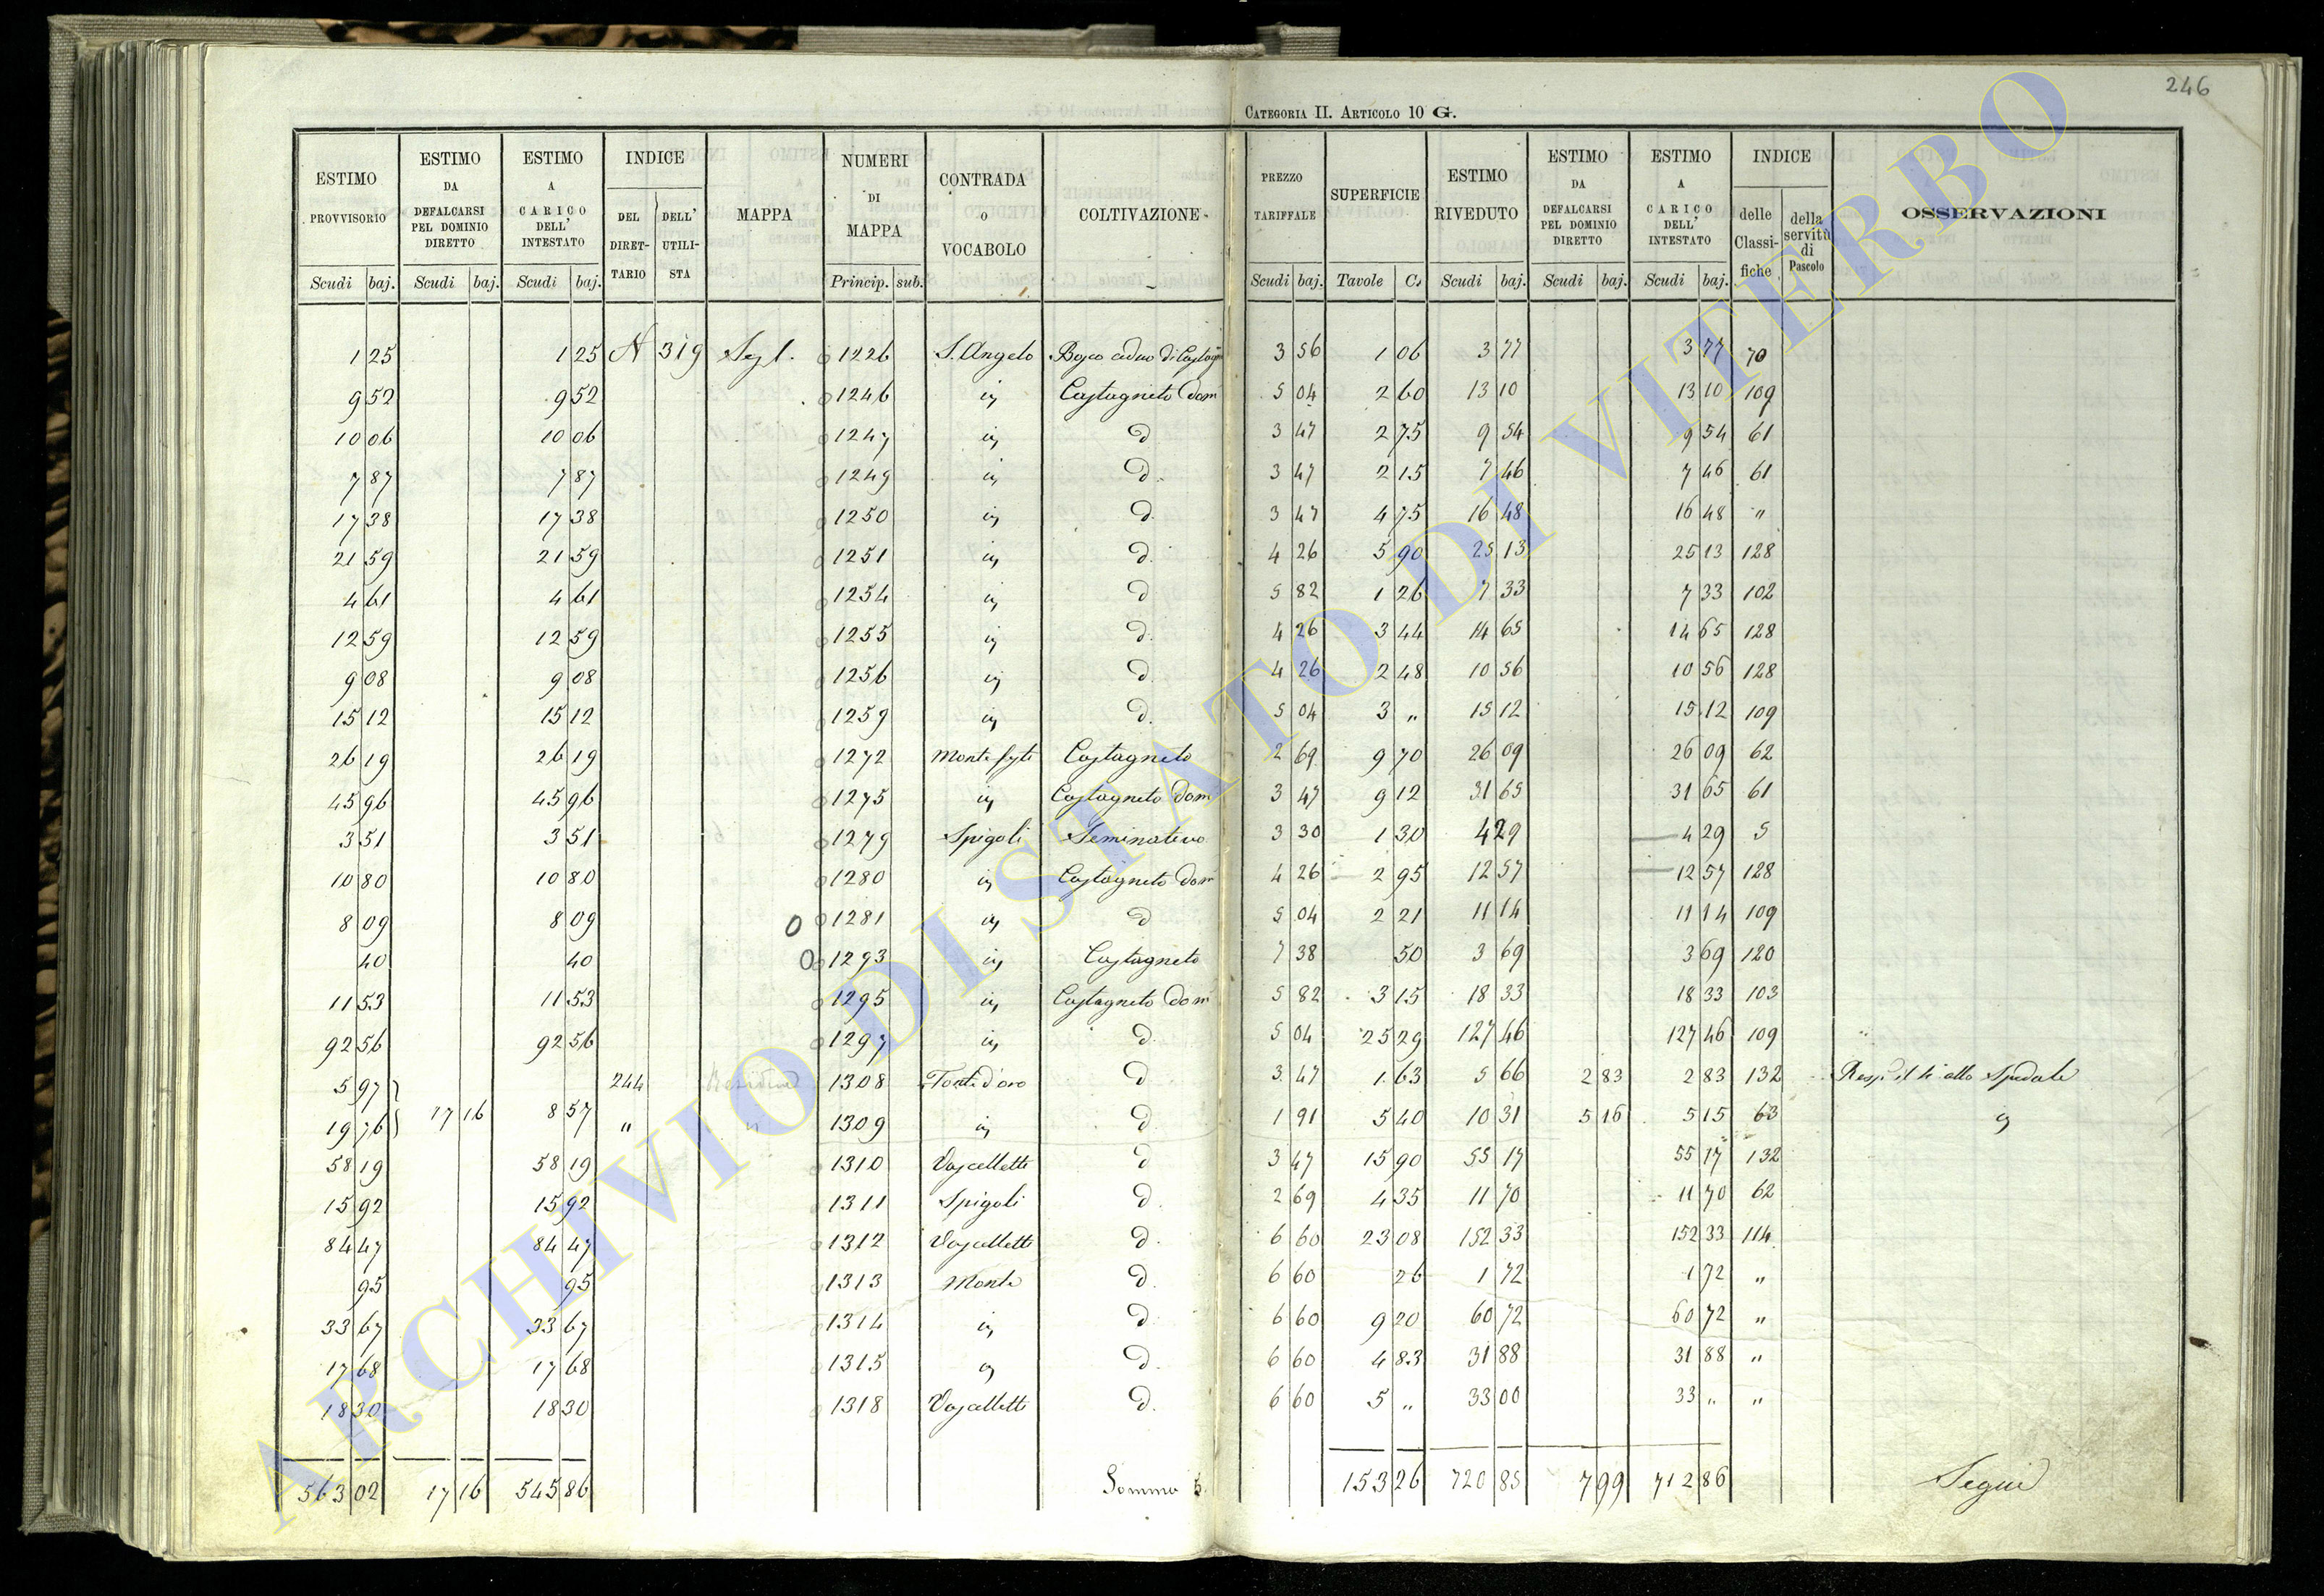 246
CATEGORIA II. ARTICOLO 10 G.
ESTIMO PROVVISORIO Scudi baj. | ESTIMO DA DEFALCARSI PEL DOMINIO DIRETTO Scudi baj. | ESTIMO A CARICO DELL' INTESTATO Scudi baj. | INDICE DEL DIRET-TARIO | DELL' UTILI-STA | MAPPA | NUMERI DI MAPPA Princip. sub. | CONTRADA O VOCABOLO | COLTIVAZIONE | PREZZO TARIFFALE Scudi baj. | SUPERFICIE Tavole C. | ESTIMO RIVEDUTO Scudi baj. | ESTIMO DA DEFALCARSI PEL DOMINIO DIRETTO Scudi baj. | ESTIMO A CARICO DELL' INTESTATO Scudi baj. | INDICE delle Classi-fiche | della servitù di Pascolo | OSSERVAZIONI
1 25 1 25 A 319 Sez I. 1226 S. Angelo Bosco ceduo di Castag 3 56 1 06 3 77 3 77 70
9 52 9 52 1246 id Castagneto dom 5 04 2 60 13 10 13 10 109
10 06 10 06 1247 id d 3 47 2 75 9 54 9 54 61
7 87 7 87 1249 id d. 3 47 2 15 7 46 7 46 61
17 38 17 38 1250 id d. 3 47 4 75 16 48 16 48 "
21 59 21 59 1251 id d. 4 26 5 90 25 13 25 13 128
4 61 4 61 1254 id d 5 82 1 26 7 33 7 33 102
12 59 12 59 1255 id d. 4 26 3 44 14 65 14 65 128
9 08 9 08 1256 id d. 4 26 2 48 10 56 10 56 128
15 12 15 12 1259 id d. 5 04 3 " 15 12 15 12 109
26 19 26 19 1272 Castagneto 2 69 9 70 26 09 26 09 62
45 96 45 96 1275 id Castagneto dom 3 47 9 12 31 65 31 65 61
3 51 3 51 1279 Spigoli Seminativo 3 30 1 30 4 29 4 29 5
10 80 10 80 1280 id Castagneto dom 4 26 2 95 12 57 12 57 128
8 09 8 09 0 1281 id d 5 04 2 21 11 14 11 14 109
40 40 0 1293 id Castagneto 7 38 50 3 69 3 69 120
11 53 11 53 1295 id Castagneto dom 5 82 3 15 18 33 18 33 103
92 56 92 56 1297 id d. 5 04 25 29 127 46 127 46 109
5 97 244 1308 Fonte d'oro d 3 47 1 63 5 66 2 83 2 83 132 allo Spedale
19 76 17 16 8 57 " " 1309 id d 1 91 5 40 10 31 5 16 5 15 63 id
58 19 58 19 1310 Vascellette d 3 47 15 90 55 17 55 17 132
15 92 15 92 1311 Spigoli d. 2 69 4 35 11 70 11 70 62
84 47 84 47 1312 Vascellette d. 6 60 23 08 152 33 152 33 114
95 95 1313 Monte d. 6 60 26 1 72 1 72 "
33 67 33 67 1314 id d. 6 60 9 20 60 72 60 72 "
17 68 17 68 1315 id d. 6 60 4 83 31 88 31 88 "
18 30 18 30 1318 Vascellette d. 6 60 5 " 33 00 33 " "
563 02 17 16 545 86 Somma 153 26 720 85 7 99 712 86 Segue
ARCHIVIO DI STATO DI VITERBO